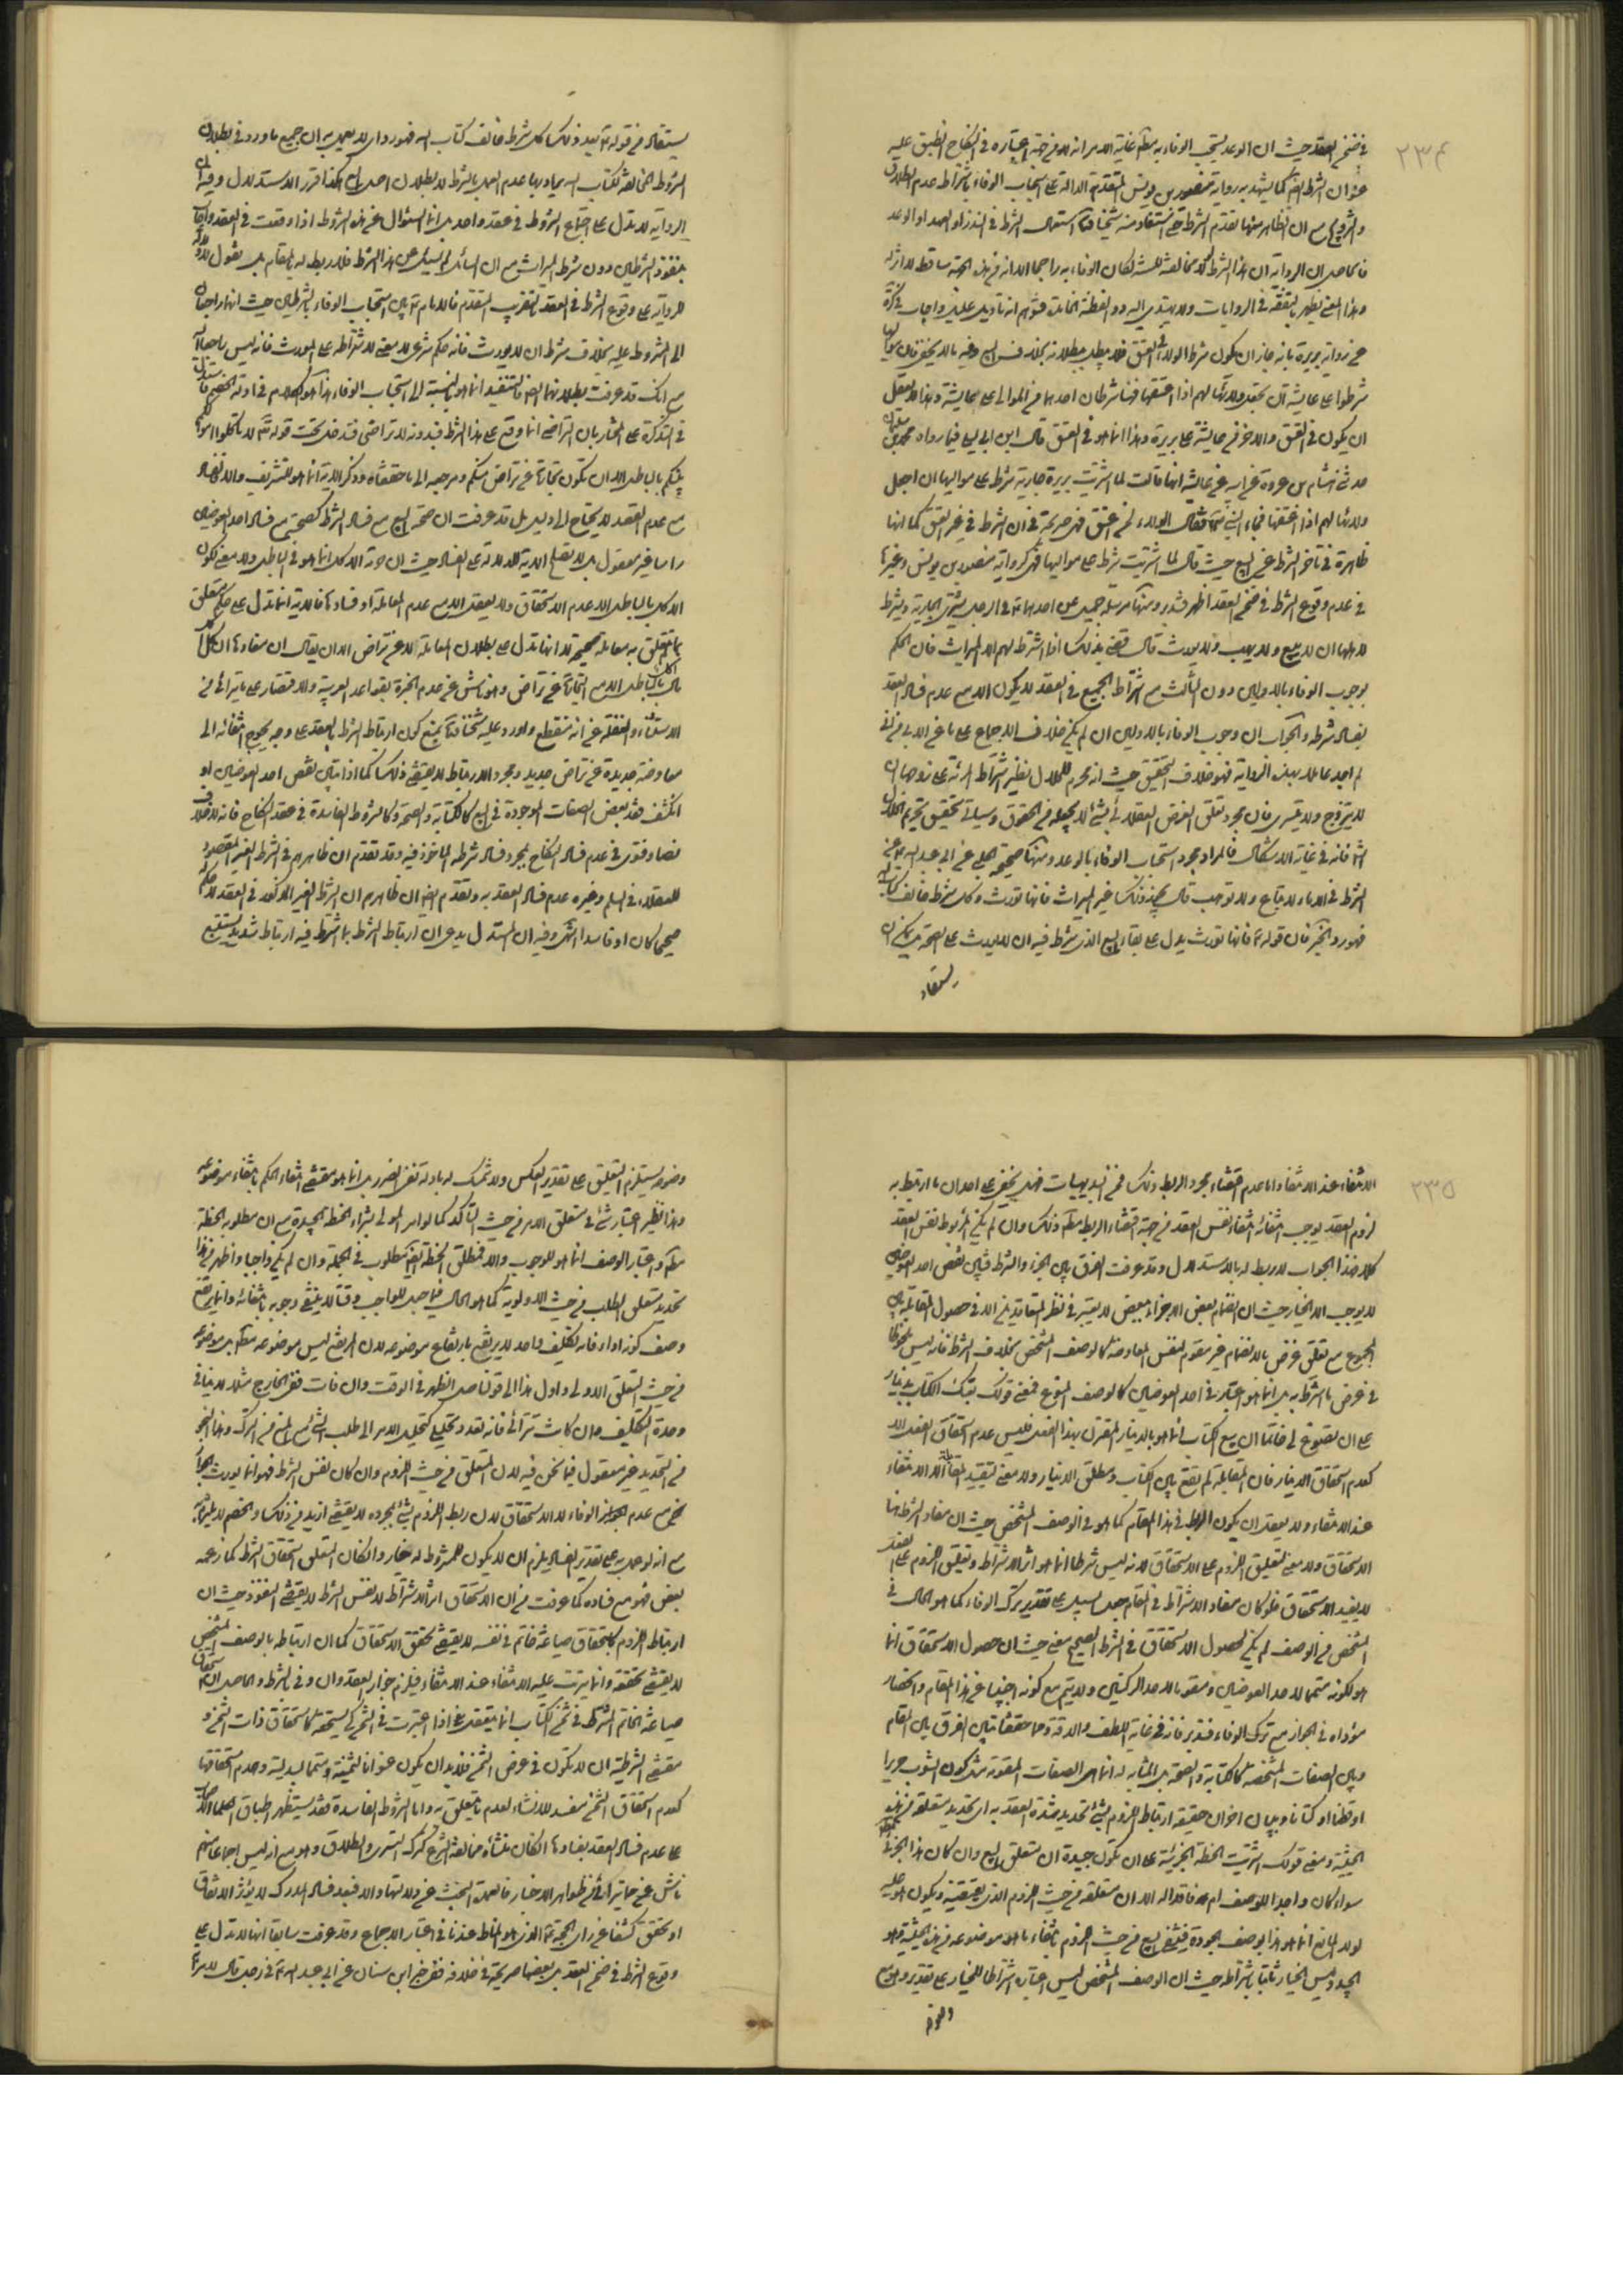 ٢٣٤
في ضمن العقد حيث ان الوعد يستحب الوفاء به مطلقا غاية الامر انه لا من جهة اعتباره في النكاح لا يطبق عليه
عنوان الشرط ايضا كما يشهد به رواية منصور بن يونس المتقدمة الدالة على استحباب الوفاء باشتراط عدم الطلاق
والتزويج مع ان الظاهر منها تقدم الشرط حتى استفاد منه شيخنا استعمال الشرط في النذر او العهد او الوعد
فالحاصل ان الرواية ان هذا الشرط لولا مخالفته للسنة لكان الوفاء به راجحا الا انه من هذه الجهة ساقط لا اثر له
وهذا المعنى يظهر بالتفقه في الروايات ولا يهتدي اليه ذو الفطنة
عن رواية بريرة بانه جاز ان يكون شرط الولاء في العتق فلا يبطل ببطلانه بخلاف البيع وفيه ما لا يخفى فان مواليها
شرطوا على عايشة ان يعتق ولائها لهم اذا اعتقتها فهنا شرطان احدهما من الموالي على عايشة وهذا لا يعقل
ان يكون في العتق والاخر من عايشة على بريرة وهذا انما هو في العتق قال ابن ابي ليلى فيما رواه محمد بن سليمان
حدثني هشام بن عروة عن ابيه عن عايشة انها قالت لما اشتريت بريرة جارية شرط على مواليها ان اجعل
ولائها لهم اذا اعتقتها فجاء النبي فقال الولاء لمن اعتق فهي صريحة في ان الشرط في غير العتق كما انها
ظاهرة في تاخر الشرط عن البيع حيث قال لما اشتريت شرط على مواليها فهي كرواية منصور بن يونس وغيرها
في عدم وقوع الشرط في ضمن العقد اظهر فتدبر ومنها مرسلة جميل عن احدهما في الرجل يشتري الجارية ويشترط
لاهلها ان لا يبيع ولا يهب ولا يورث قال يفي بذلك اذا اشترط لهم الا الميراث فان الحكم
بوجوب الوفاء بالاولين دون الثالث مع اشتراط الجميع في العقد لا يكون الا مع عدم فساد العقد
بفساد شرطه والجواب ان وجوب الوفاء بالاولين ان لم يكن خلاف الاجماع على ما عن الدبيلي
لم اجد عاملا بهذه الرواية فهو خلاف التحقيق حيث انه محرم للحلال نظير اشتراط المرئة على زوجها ان
لا يتزوج ولا يتسرى فان مجرد تعلق الغرض العقلائي بشيء لا يجعله من الحقوق وسياتي تحقيق تحريم الحلال
انشا فانه في غاية الاشكال فالمراد مجرد استحباب الوفاء بالوعد ومنها صحيحة الحلبي عن ابي عبد الله ع عن
الشرط في الاماء لا تباع ولا توهب قال يجوز ذلك غير الميراث فانها تورث وكل شرط خالف كتاب الله
فهو رد الخبر فان قوله ع فانها تورث يدل على بقاء البيع الذي شرط فيه ان لا يورث على الصحة بل يمكن ان
يستفاد
يستفاد من قوله ع بعد ذلك كل شرط خالف كتاب الله فهو رد اي لا يعمل به ان جميع ما ورد في بطلان
الشروط المخالفة لكتاب الله يراد بها عدم العمل بالشرط لا بطلان اصل البيع هكذا قرر الاستدلال وفيه ان
الرواية لا تدل على اجتماع الشروط في عقد واحد بل انما السؤال عن هذه الشروط اذا وقعت في العقد واجاب
بنفوذ الشرطين دون شرط الميراث مع ان السائل لم يسئل عن هذا الشرط فلا ربط له بالمقام بل نقول لا دلالة
للرواية على وقوع الشرط في العقد بالتقريب المتقدم فالامام ع بين استحباب الوفاء بالشرطين حيث انها راجعان
الى المشروط عليه بخلاف شرط ان لا يورث فانه حكم شرعي لا معنى لاشتراطه على المورث فانه ليس راجعا اليه
مع انك قد عرفت بطلانهما ايضا فالتنفيذ انما هو بالنسبة الى استحباب الوفاء هذا هو الكلام في ادلة الخصم فاستدل
في التذكرة على المختار بان التراضي انما وقع على هذا الشرط فبدونه لا تراضي فتدخل تحت قوله تعالى لا تاكلوا اموالكم
بينكم بالباطل الا ان تكون تجارة عن تراض منكم ومرجعه الى ما حققناه وذكر الاية انما هو للتشريف والا فالفساد
مع عدم العقد لا يحتاج الى دليل بل قد عرفت ان صحة البيع مع فساد الشرط كصحته مع فساد احد العوضين
راسا غير معقول بل لا تصلح الاية للدلالة على الفساد حيث ان حرمة الاكل انما هو في الباطل ولا معنى لكون
الاكل بالباطل الا عدم الاستحقاق ولا يعقل الا مع عدم المعاملة او فسادها فالاية انما تدل على حكم متعلق
بما يتعلق به معاملة صحيحة لا انها تدل على بطلان المعاملة لا عن تراض الا ان يقال ان مفادها ان كل
مال باطل الا مع التجارة عن تراض وهو ناش عن عدم الخبرة بقواعد العربية والاقتصار على ما يترائى من
الاستثناء والغفلة عن انه منقطع واورد عليه شيخنا بمنع كون ارتباط الشرط بالعقد على وجه يحوج انتفائه الى
معاوضة جديدة عن تراض جديد ومجرد الارتباط لا يقتضي ذلك كما اذا تبين نقص احد العوضين او
انكشف فقد بعض الصفات الموجودة في البيع كالكتابة والصحة وكالشروط الفاسدة في عقد النكاح فانه لا خلاف
نصا وفتوى في عدم فساد النكاح بمجرد فساد شرطه الماخوذ فيه وقد تقدم ان ظاهرهم في الشرط الغير المقصود
للعقلاء في السلم وغيره عدم فساد العقد به وتقدم ايضا ان ظاهرهم ان الشرط الغير المذكور في العقد لا حكم له
صحيحا كان او فاسدا انتهى وفيه ان المستدل يدعي ان ارتباط الشرط بما اشترط فيه ارتباط شديد يستتبع
٢٣٥
الانتفاء عند الانتفاء واما عدم اقتضاء مجرد الربط ذلك فمن البديهيات فهل يخفى على احد ان ما ارتبط به
لزوم العقد يوجب انتفائه انتفاء نفس العقد من جهة اقتضاء الربط مطلقا ذلك وان لم يكن المربوط نفس العقد
كلا فهذا الجواب لا ربط له بالاستدلال وقد عرفت الفرق بين الجزء والشرط فتبين نقص احد العوضين
لا يوجب الا الخيار حيث ان انضمام بعض الاجزاء ببعض لا يعتبر في نظر المتعاقدين الا في حصول المقابلة بين
المجموع مع تعلق غرض بالانضمام غير مقوم لنفس المعاوضة كالوصف المشخص بخلاف الشرط فانه ليس ملحوظا
في عرض ما اشترط به بل انما هو اعتبار في احد العوضين كالوصف المنوع فمعنى قولك بعتك الكتاب بدينار
على ان تصوغ لي خاتما ان بيع الكتاب انما هو بالدينار المقترن بهذا الفعل فليس عدم استحقاق الفعل الا
كعدم استحقاق الدينار فان المقابلة لم يقع بين الكتاب ومطلق الدينار ولا معنى لتقييد المقابلة الا الانتفاء
عند الانتفاء ولا يعقل ان يكون الربط في هذا المقام كما هو في الوصف المشخص حيث ان مفاد الشرط هنا
الاستحقاق ولا معنى لتعليق اللزوم على الاستحقاق لانه ليس شرطا انما هو اثر الاشتراط وتعليق اللزوم على الفعل
لا يفيد الاستحقاق فلو كان مفاد الاشتراط في المقام جعل سبيل على تقدير ترك الوفاء كما هو الحال في
المشخص من الوصف لم يكن لحصول الاستحقاق في الشرط الصحيح معنى حيث ان حصول الاستحقاق انما
هو لكونه متمما لاحد العوضين ومقوما لاحد الركنين ولا يتم مع كونه اجنبيا عن هذا المقام وانحصار
مؤداه في الجواز مع ترك الوفاء فتدبر فانه في غاية اللطف والدقة ومما حققنا تبين الفرق بين المقام
وبين الصفات المشخصة كالكتابة والصحة بل المشابه له انما هي الصفات المقومة مثل كون الثوب حريرا
او قطنا او كتانا وبيان اخر ان حقيقة ارتباط اللزوم بشيء تحديد مشدة العقد به اي تحديد متعلقه من هذه
الحيثية ومعنى قولك اشتريت الحنطة الجزئية على ان تكون جيدة ان متعلق البيع وان كان هذا الجزئي
سواء كان واجدا للوصف ام فاقدا له الا ان متعلقه من حيث اللزوم الذي يقتضيه ويكون هو عليه
لولا المانع انما هو هذا بوصف الجودة فينتفي البيع من حيث اللزوم بانتفاء ما هو موضوعه من هذه الحيثية وهو
الجيد وليس الخيار ثابتا باشتراطه حيث ان الوصف المشخص ليس اعتباره اشتراطا للخيار على تقدير وضع
واللزوم
وضوفه يستلزم التعليق على تقدير العكس ولا تمسك له بادلة نفي الضرر بل انما هو مقتضى انتفاء الحكم بانتفاء موضوعه
وهذا نظير اعتبار شيء في متعلق الامر من حيث التاكد كما لو امر المولى بشراء الحنطة الجيدة مع ان مطلوبه الحنطة
مطلقا واعتبار الوصف انما هو للوجوب والا فمطلق الحنطة ايضا مطلوب في الجملة وان لم يكن واجبا واظهر من هذا
تحديد متعلق الطلب من حيث الاولوية كما هو الحال فيما جعل للواجب وقتا لا ينتفي وجوبه بانتفائه وانما يرتفع
وصف كونه اداء فانه تكليف واحد لا يرتفع بارتفاع موضوعه لان المرتفع ليس موضوعه مطلقا بل موضوعه
من حيث التعلق الاولي واول هذا الى قولنا صل الظهر في الوقت وان فات ففي الخارج مثلا لا ينافي
وحدة التكليف وان كانت تترائى فانه تعدد تحليلي كتحليل الامر الى طلب الشيء مع المنع من الترك وهذا النحو
من التحديد غير معقول فيما نحن فيه لان المتعلق من حيث اللزوم وان كان نفس الشرط فهو انما يورث الجواز
فمع عدم الوفاء لا الاستحقاق لان ربط اللزوم بشيء بمجرده لا يقتضي ازيد من ذلك والخصم لا يلتزم به
مع انه لو عمل به على تقدير الفساد يلزم ان لا يكون للمشروط له خيار وان كان المتعلق استحقاق الشرط كما زعمه
بعض فهو مع فساده كما عرفت من ان الاستحقاق اثر الاشتراط لا نفس الشرط لا يقتضي النفوذ حيث ان
ارتباط اللزوم باستحقاق صياغة خاتم في نفسه لا يقتضي تحقق الاستحقاق كما ان ارتباطه بالوصف المشخص
لا يقتضي تحققه وانما يترتب عليه الانتفاء عند الانتفاء فيلزم جواز العقد وان وفى بالشرط والحاصل ان استحقاق
صياغة الخاتم المشترط في ثمن الكتاب انما يتعقل اذا اعتبرت في الثمن كي يستحقها كاستحقاق ذات الثمن و
مقتضى الشرطية ان لا تكون في عرض الثمن فلا بد ان يكون عنوانا لثمنيته ومتمما لبدليته وعدم استحقاقها
كعدم استحقاق الثمن مفسد للانشاء لعدم ما يتعلق به واما الشروط الفاسدة فقد يستظهر اطباق العلماء
على عدم فساد العقد بفسادها ان كان منشاه مخالفة الشرع كترك التسري والطلاق وهو مع انه ليس اجماعا منهم
ناش عن ما يترائى من ظواهر الاخبار فالعمدة البحث عن دلالتها والا فبعد فساد المدرك لا يؤثر الاتفاق
او تحقق كشفا عن راي الحجة الذي هو المناط عندنا في اعتبار الاجماع وقد عرفت سابقا انها لا تدل على
وقوع الشرط في ضمن العقد بل بعضها صريحة في خلافه ففي خبر ابن سنان عن ابي عبد الله ع في رجل قال لامرئته